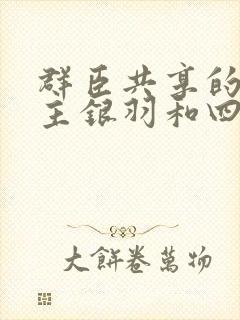 群臣共享的
主银羽和四
大餅卷萬物